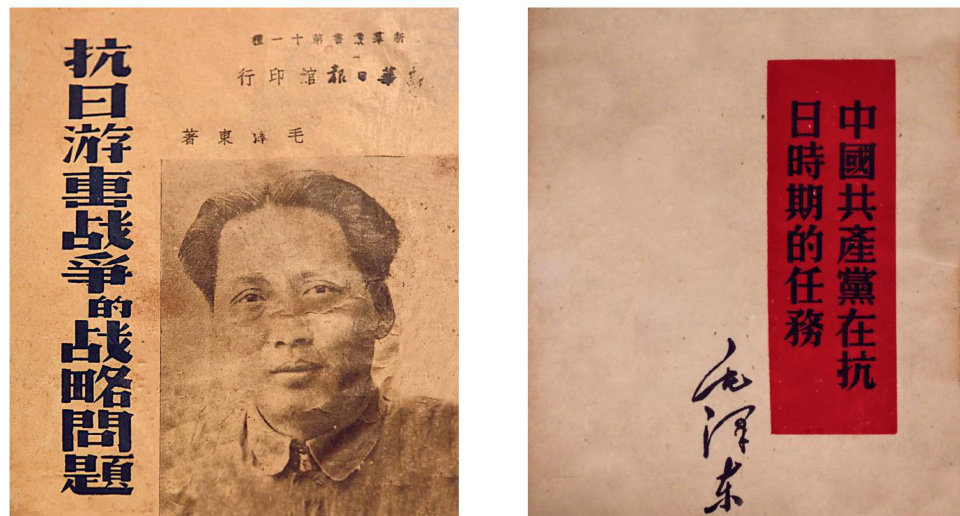 新羣叢書第十一種
新華日報館印行
毛澤東著
抗日游击战争的战略問題
中國共產黨在抗
日時期的任務
毛泽东